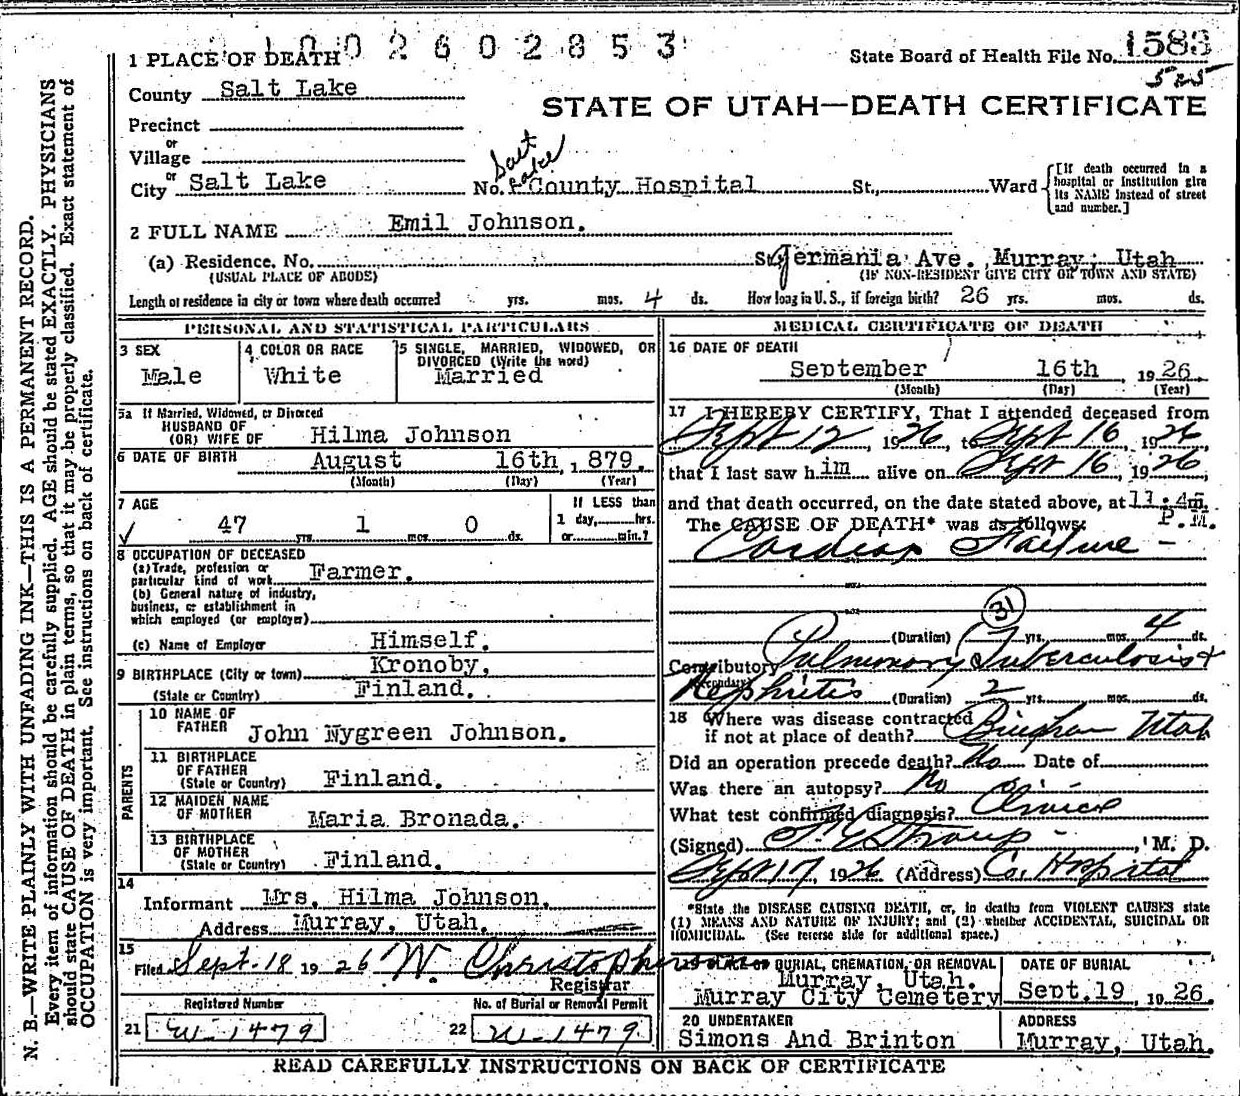 1002602853
State Board of Health File No. 1583
525
1 PLACE OF DEATH
County Salt Lake
STATE OF UTAH—DEATH CERTIFICATE
Precinct
or
Village
City or Salt Lake No. Salt Lake County Hospital St., Ward
[If death occurred in a hospital or institution give its NAME instead of street and number.]
2 FULL NAME Emil Johnson.
(a) Residence, No. St. Germania Ave. Murray, Utah
(USUAL PLACE OF ABODE) (IF NON-RESIDENT GIVE CITY OR TOWN AND STATE)
Length of residence in city or town where death occurred yrs. mos. 4 ds. How long in U. S., if foreign birth? 26 yrs. mos. ds.
PERSONAL AND STATISTICAL PARTICULARS
3 SEX
Male
4 COLOR OR RACE
White
5 SINGLE, MARRIED, WIDOWED, OR DIVORCED (Write the word)
Married
5a If Married, Widowed, or Divorced
HUSBAND OF
(OR) WIFE OF Hilma Johnson
6 DATE OF BIRTH August 16th, 1879.
(Month) (Day) (Year)
7 AGE
47 yrs. 1 mos. 0 ds.
If LESS than
1 day, hrs.
or min.?
8 OCCUPATION OF DECEASED
(a) Trade, profession or
particular kind of work Farmer.
(b) General nature of industry,
business, or establishment in
which employed (or employer)
(c) Name of Employer Himself.
9 BIRTHPLACE (City or town) Kronoby,
(State or Country) Finland.
PARENTS
10 NAME OF
FATHER John Nygreen Johnson.
11 BIRTHPLACE
OF FATHER
(State or Country) Finland.
12 MAIDEN NAME
OF MOTHER Maria Bronada.
13 BIRTHPLACE
OF MOTHER
(State or Country) Finland.
14
Informant Mrs. Hilma Johnson.
Address Murray, Utah.
15
Filed Sept. 18 1926 W. Christopherson
Registrar
Registered Number No. of Burial or Removal Permit
21 W-1479 22 W-1479
MEDICAL CERTIFICATE OF DEATH
16 DATE OF DEATH
September 16th 1926.
(Month) (Day) (Year)
17 I HEREBY CERTIFY, That I attended deceased from
Sept 12, 1926, to Sept 16, 1926
that I last saw him alive on Sept 16, 1926
and that death occurred, on the date stated above, at 11:45 m.
P.M.
The CAUSE OF DEATH* was as follows:
Cardiac Failure -
31
(Duration) yrs. mos. 4 ds.
Contributory Pulmonary Tuberculosis +
Secondary
Nephritis (Duration) 2 yrs. mos. ds.
18 Where was disease contracted
if not at place of death? Bingham Utah
Did an operation precede death? No Date of
Was there an autopsy? No
What test confirmed diagnosis? Clinical
(Signed) , M. D.
Sept 17, 1926 (Address) Co. Hospital
*State the DISEASE CAUSING DEATH, or, in deaths from VIOLENT CAUSES state
(1) MEANS AND NATURE OF INJURY; and (2) whether ACCIDENTAL, SUICIDAL OR
HOMICIDAL. (See reverse side for additional space.)
19 PLACE OF BURIAL, CREMATION, OR REMOVAL
Murray, Utah.
Murray City Cemetery
DATE OF BURIAL
Sept. 19, 1926.
20 UNDERTAKER
Simons And Brinton
ADDRESS
Murray, Utah.
READ CAREFULLY INSTRUCTIONS ON BACK OF CERTIFICATE
N. B.—WRITE PLAINLY WITH UNFADING INK—THIS IS A PERMANENT RECORD.
Every item of information should be carefully supplied. AGE should be stated EXACTLY. PHYSICIANS
should state CAUSE OF DEATH in plain terms, so that it may be properly classified. Exact statement of
OCCUPATION is very important. See instructions on back of certificate.